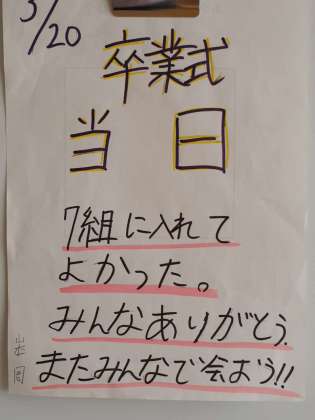 3/20
卒業式
当日
7組に入れて
よかった。
みんなありがとう.
またみんなで会おう!!